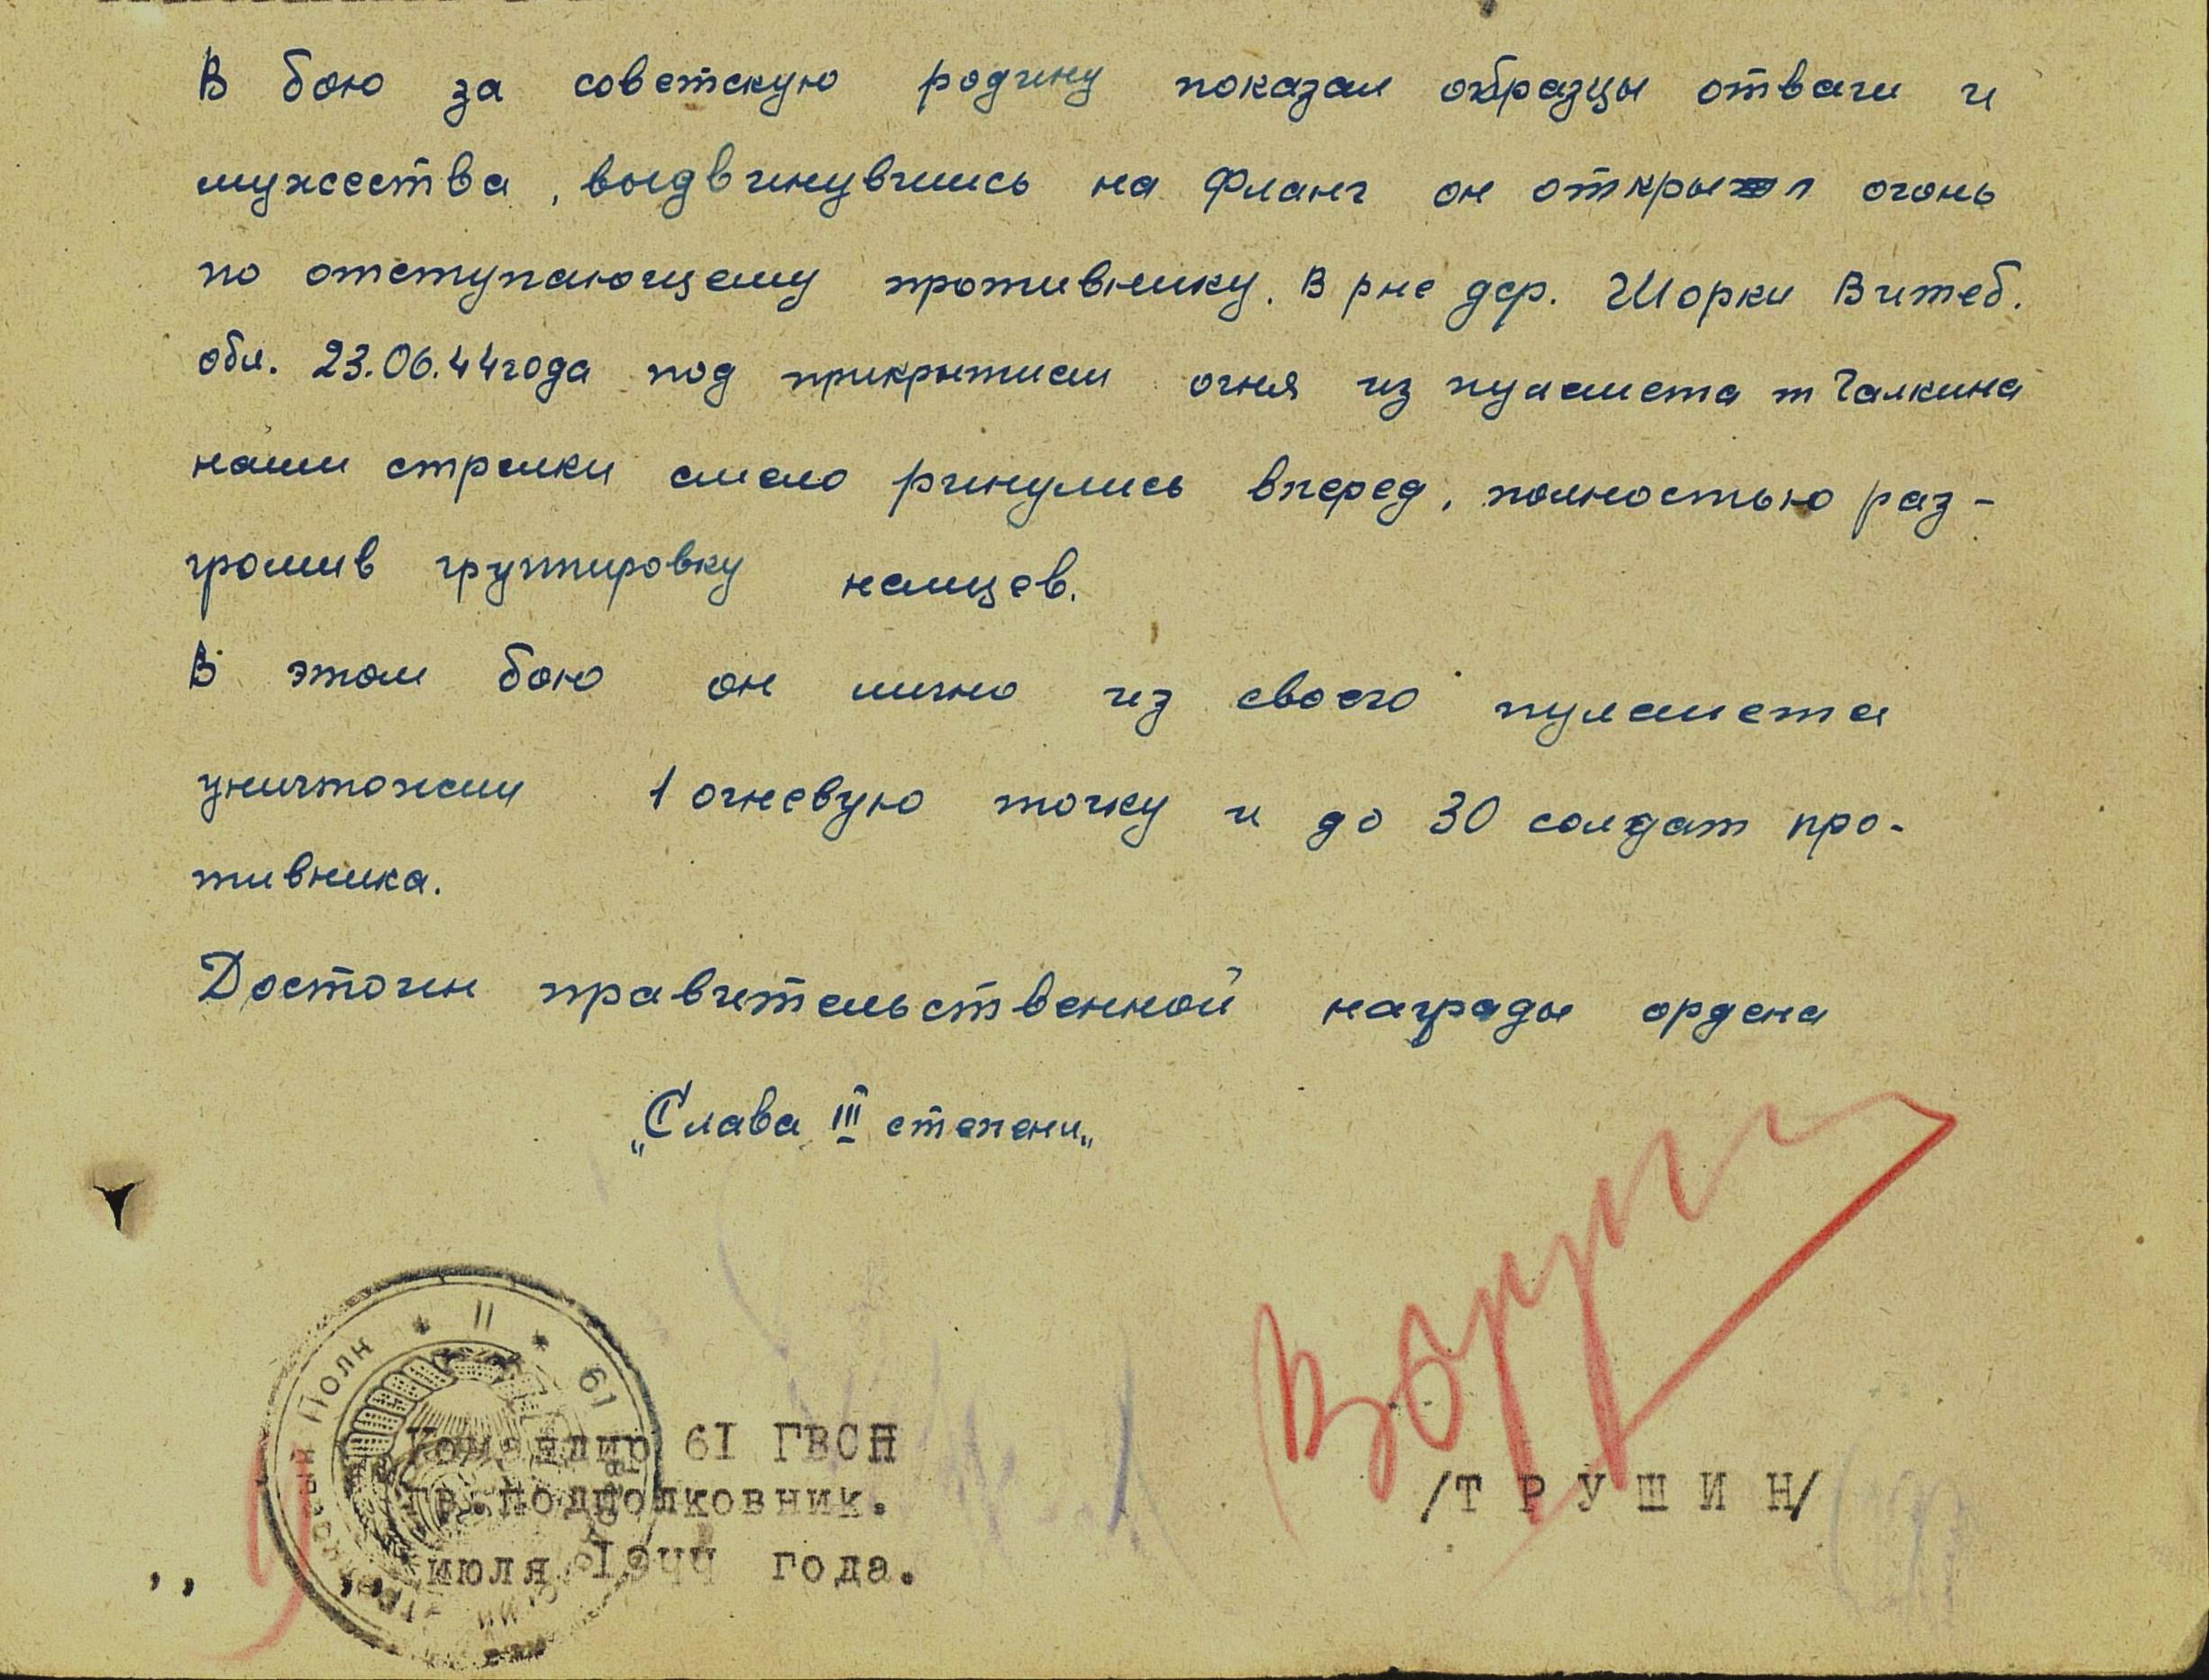 В бою за советскую родину показал образцы отваги и
мужества, выдвинувшись на фланг он открыл огонь
по отступающему противнику. В рне дер. Шорки Витеб.
обл. 23.06.44года под прикрытием огня из пулемета т Галкина
наши стрелки смело ринулись вперед, полностью раз-
громив группировку немцев.
В этом бою он лично из своего пулемета
уничтожил 1 огневую точку и до 30 солдат про-
тивника.
Достоин правительственной награды ордена
„Слава III степени„
Командир 61 ГВСП
гв.подполковник.
/Т Р У Ш И Н/
,, 9 ,, июля 1944 года.
Полк * II * 61